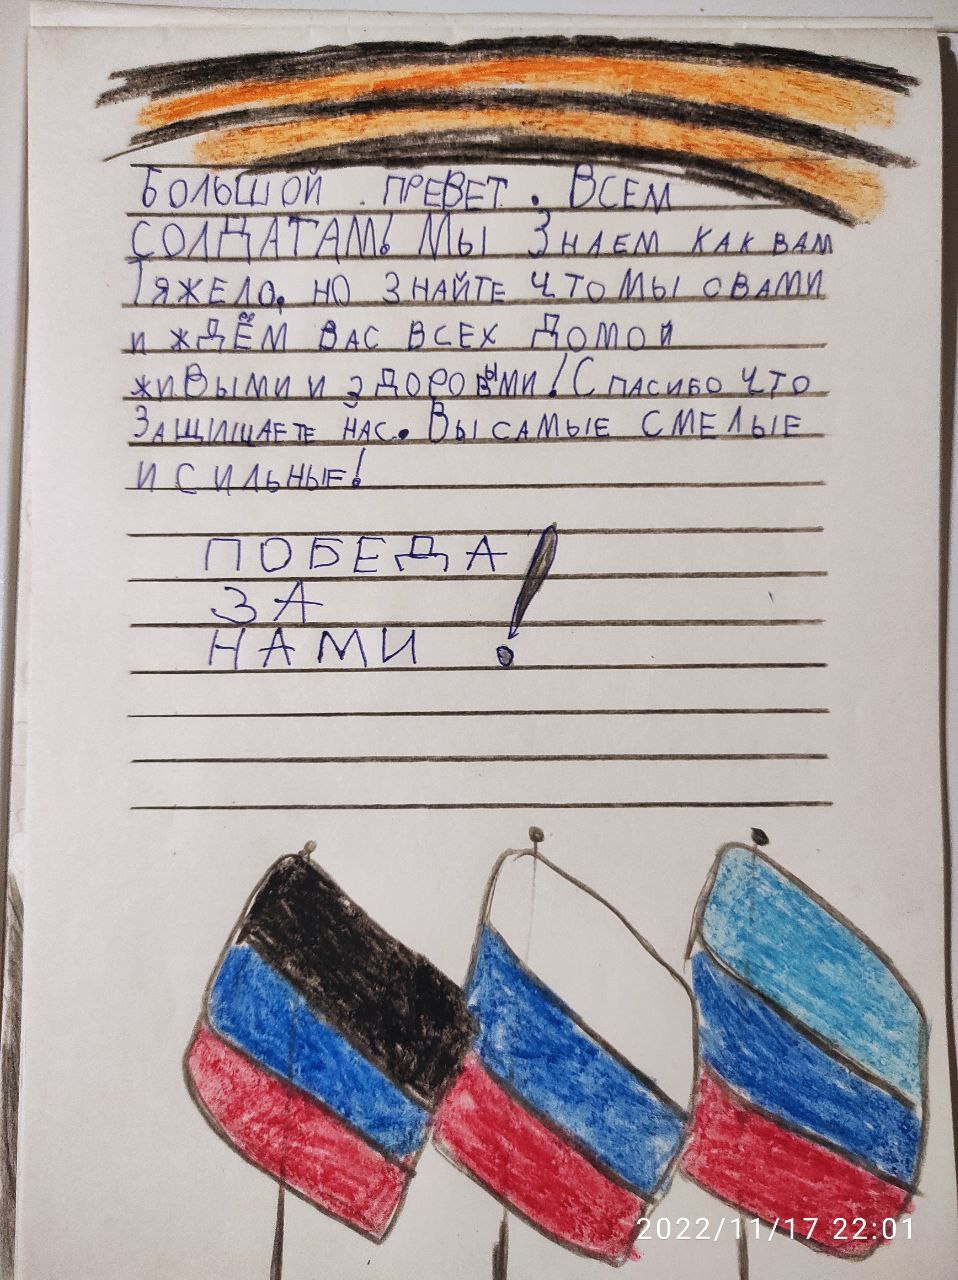 БОЛЬШОЙ . ПРЕВЕТ . ВСЕМ
СОЛДАТАМ! МЫ ЗНАЕМ КАК ВАМ
ТЯЖЕЛО, НО ЗНАЙТЕ ЧТО МЫ СВАМИ
И ЖДЁМ ВАС ВСЕХ ДОМОЙ
ЖИВЫМИ И ЗДОРОВЫМИ! СПАСИБО ЧТО
ЗАЩИЩАЕТЕ НАС. ВЫ САМЫЕ СМЕЛЫЕ
И СИЛЬНЫЕ!
ПОБЕДА
ЗА
НАМИ !
2022/11/17 22:01